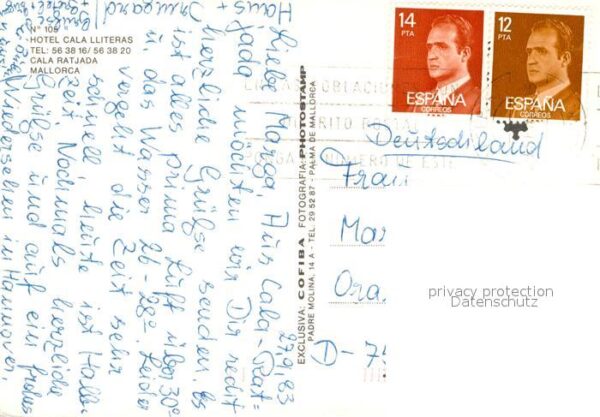 Nº 105
HOTEL CALA LLITERAS
TEL: 56 38 16/ 56 38 20
CALA RATJADA
MALLORCA
27.9.83
Liebe Marga, Aus Cala-Rat=
jada möchten wir Dir recht
herzliche Grüße senden. Es
ist alles prima Luft über 30°
u das Wasser 26-28°. Leider
vergeht die Zeit sehr
schnell heute ist Halb-
zeit. Nochmals herzliche
Grüße und auf ein frohes
Wiedersehen in Hannover.
Haus +
Irmgard
EXCLUSIVA: COFIBA FOTOGRAFIA: PHOTOSTAMP
PADRE MOLINA, 14 A - TEL. 29 52 87 - PALMA DE MALLORCA
14
PTA
ESPAÑA
CORREOS
12
PTA
ESPAÑA
CORREOS
PONGA NUMERO DE ESTE
Deutschland
Frau
Mar
Ora
D- 7
privacy protection
Datenschutz